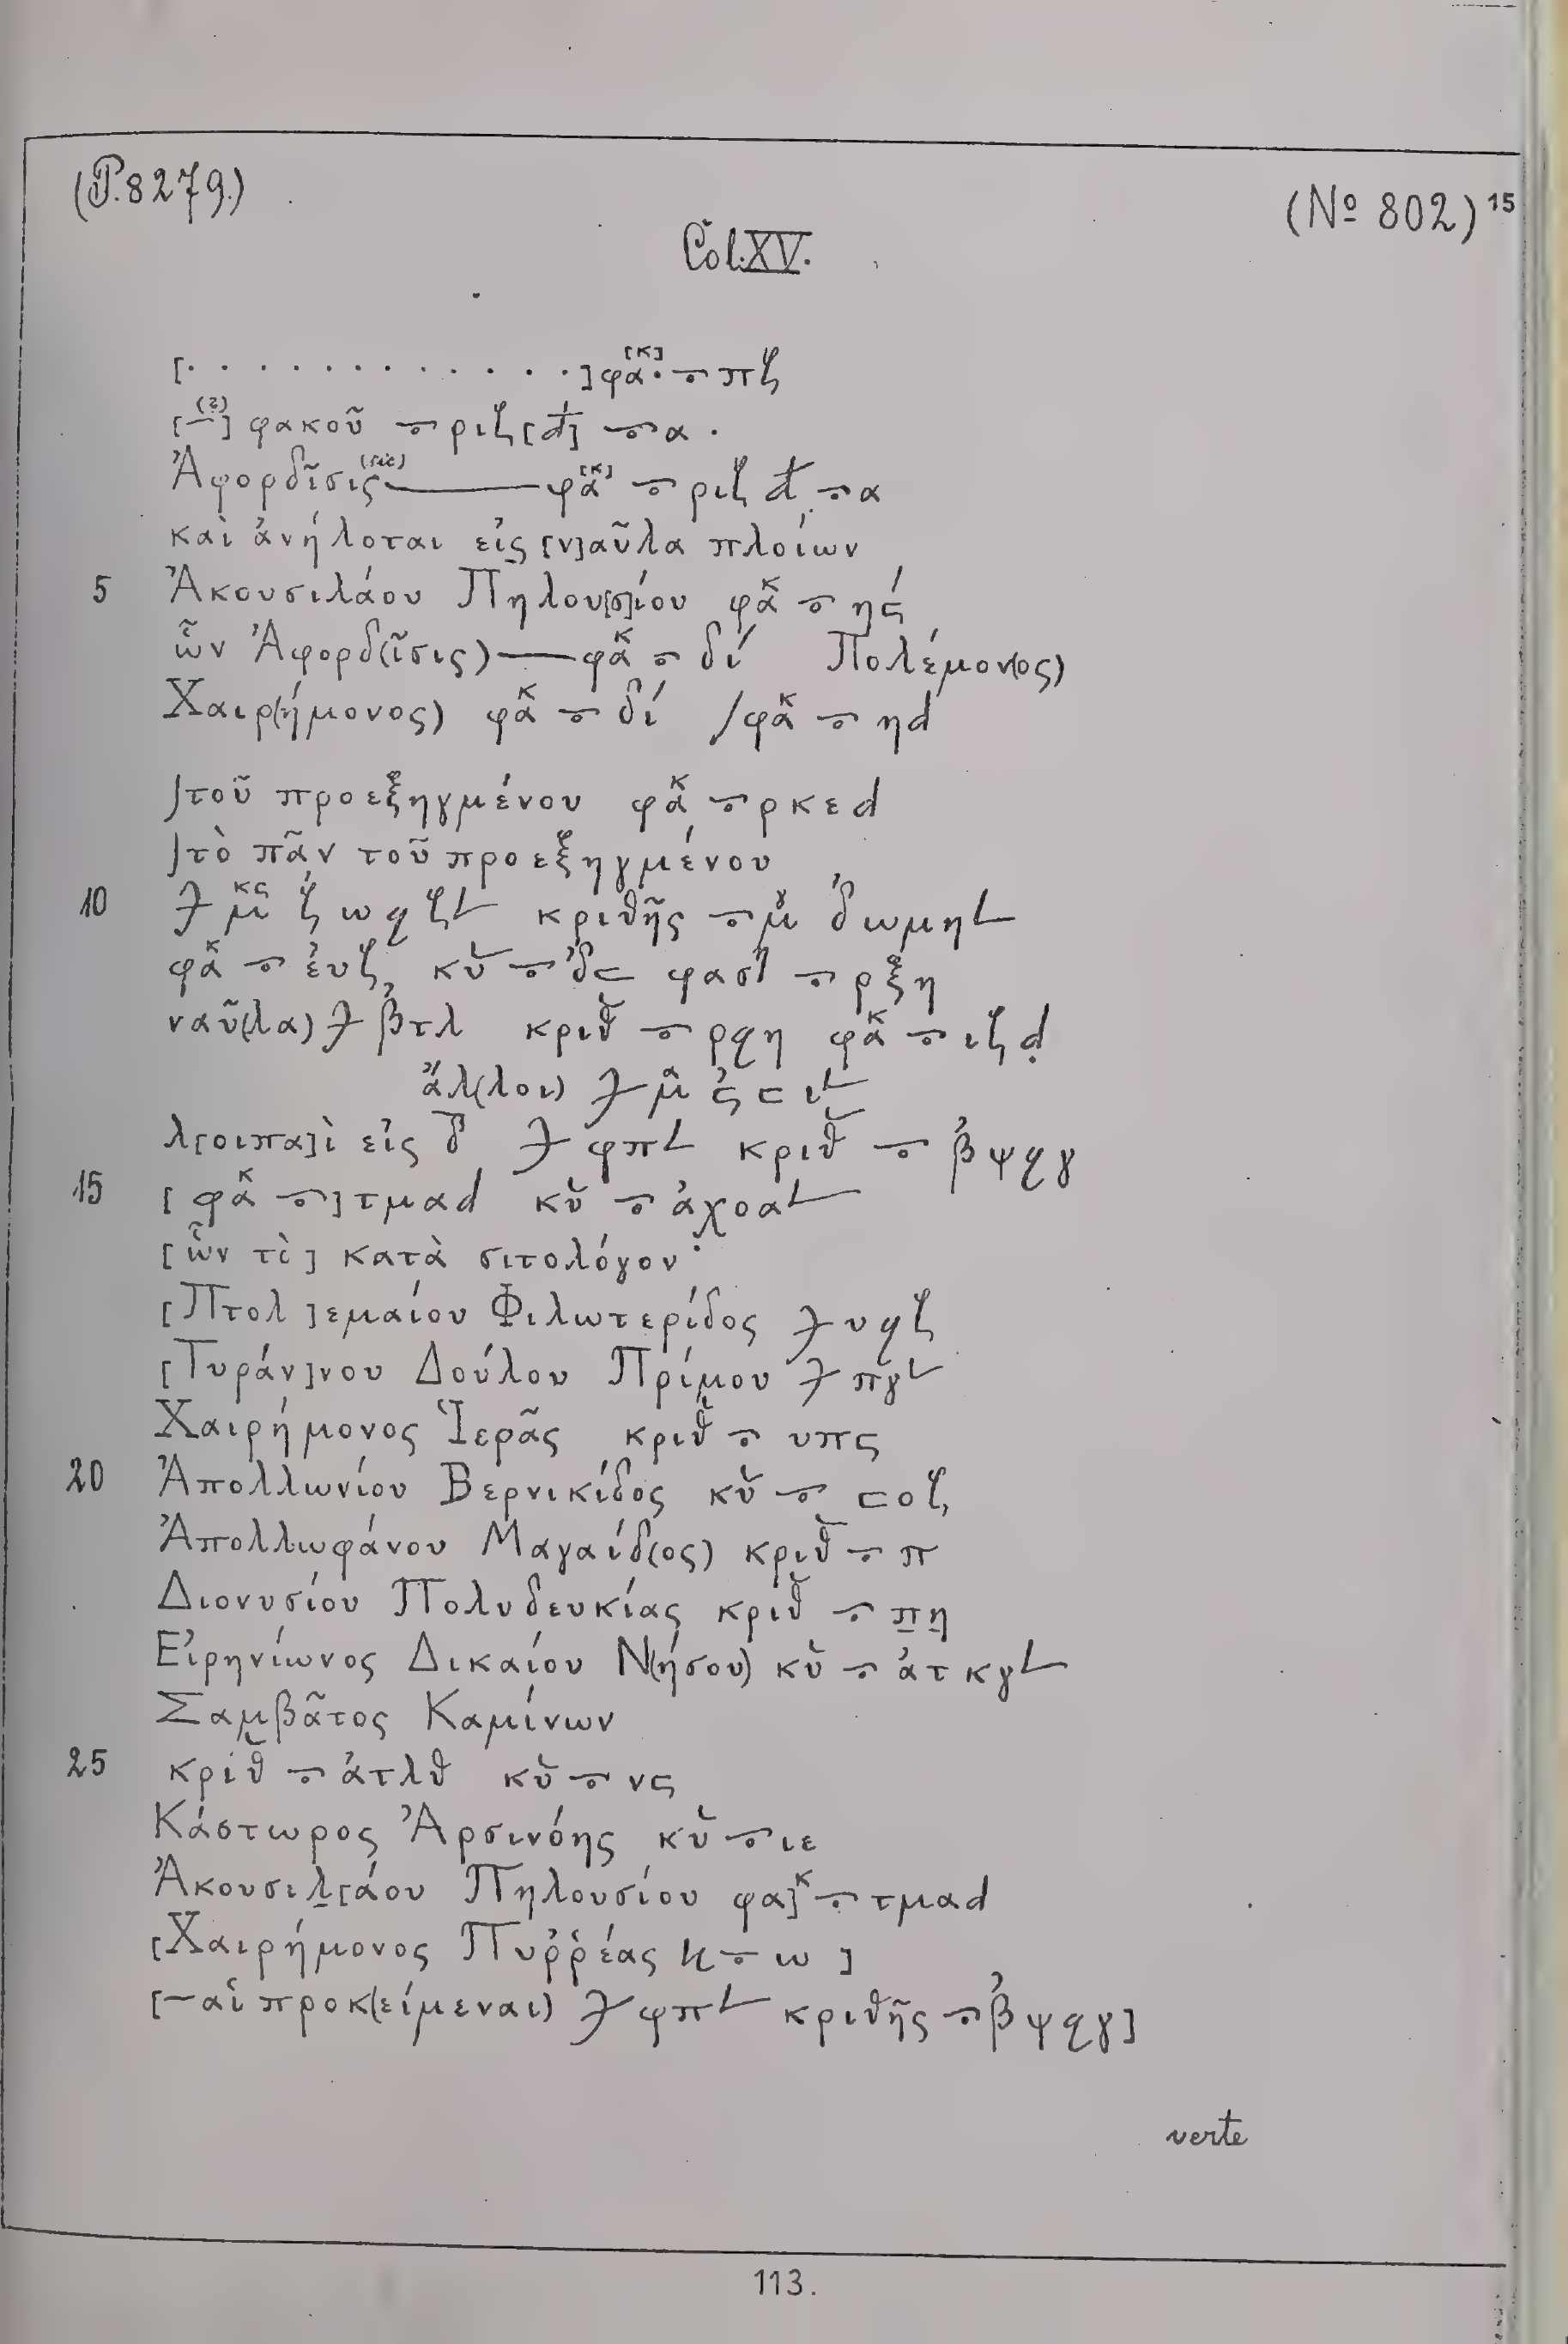 (P. 8279.)
(№ 802) 15
Col. XV.
[· · · · · · · · · · · ·] φα[κ]· ⲟ πζ
[—(?)] φακοῦ ⲟ ριζ[d] ⲟ α ·
Ἀφορδῖσις(sic)——φα[κ] ⲟ ριζ d ⲟ α
καὶ ἀνήλοται εἰς [ν]αῦλα πλοίων
5 Ἀκουσιλάου Πηλου[σ]ίου φακ ⲟ ηϛ́
ὧν Ἀφορδ(ῖσις)—φακ ⲟ δί Πολέμον(ος)
Χαιρ(ήμονος) φακ ⲟ δί /φακ ⲟ ηd
∫τοῦ προεξηγμένου φακ ⲟ ρκεd
∫τὸ πᾶν τοῦ προεξηγμένου
10 κριθῆς
φακ κυ
ναῦ(λα) βτλ κριθ ⲟ ρϥη φακ ⲟ ιζd
ἄλ(λοι)
λ[οιπα]ὶ εἰς δ φπL κριθ ⲟ βψϥγ
15 [φακ ⲟ] τμαd κυ ⲟ ἀχοαL
[ὧν τὶ] κατὰ σιτολόγον·
[Πτολ]εμαίου Φιλωτερίδος υϥζ
[Τυράν]νου Δούλου Πρίμου πγL
Χαιρήμονος Ἱερᾶς κριθ ⲟ υπϛ
20 Ἀπολλωνίου Βερνικίδος κυ ⲟ ⲥοζ
Ἀπολλωφάνου Μαγαίδ(ος) κριθ ⲟ π
Διονυσίου Πολυδευκίας κριθ ⲟ π̲η̲
Εἰρηνίωνος Δικαίου Ν(ήσου) κυ ⲟ ἀτκγL
Σαμβᾶτος Καμίνων
25 κριθ ⲟ ἀτλθ κυ ⲟ νϛ
Κάστωρος Ἀρσινόης κυ ⲟ ιε
Ἀκουσιλ[άου Πηλουσίου φα]κ ⲟ τμαd
[Χαιρήμονος Πυῤῥέας κ ⲟ ω ]
[—αἱ προκ(είμεναι) φπL κριθῆς ⲟ βψϥγ]
verte
113.